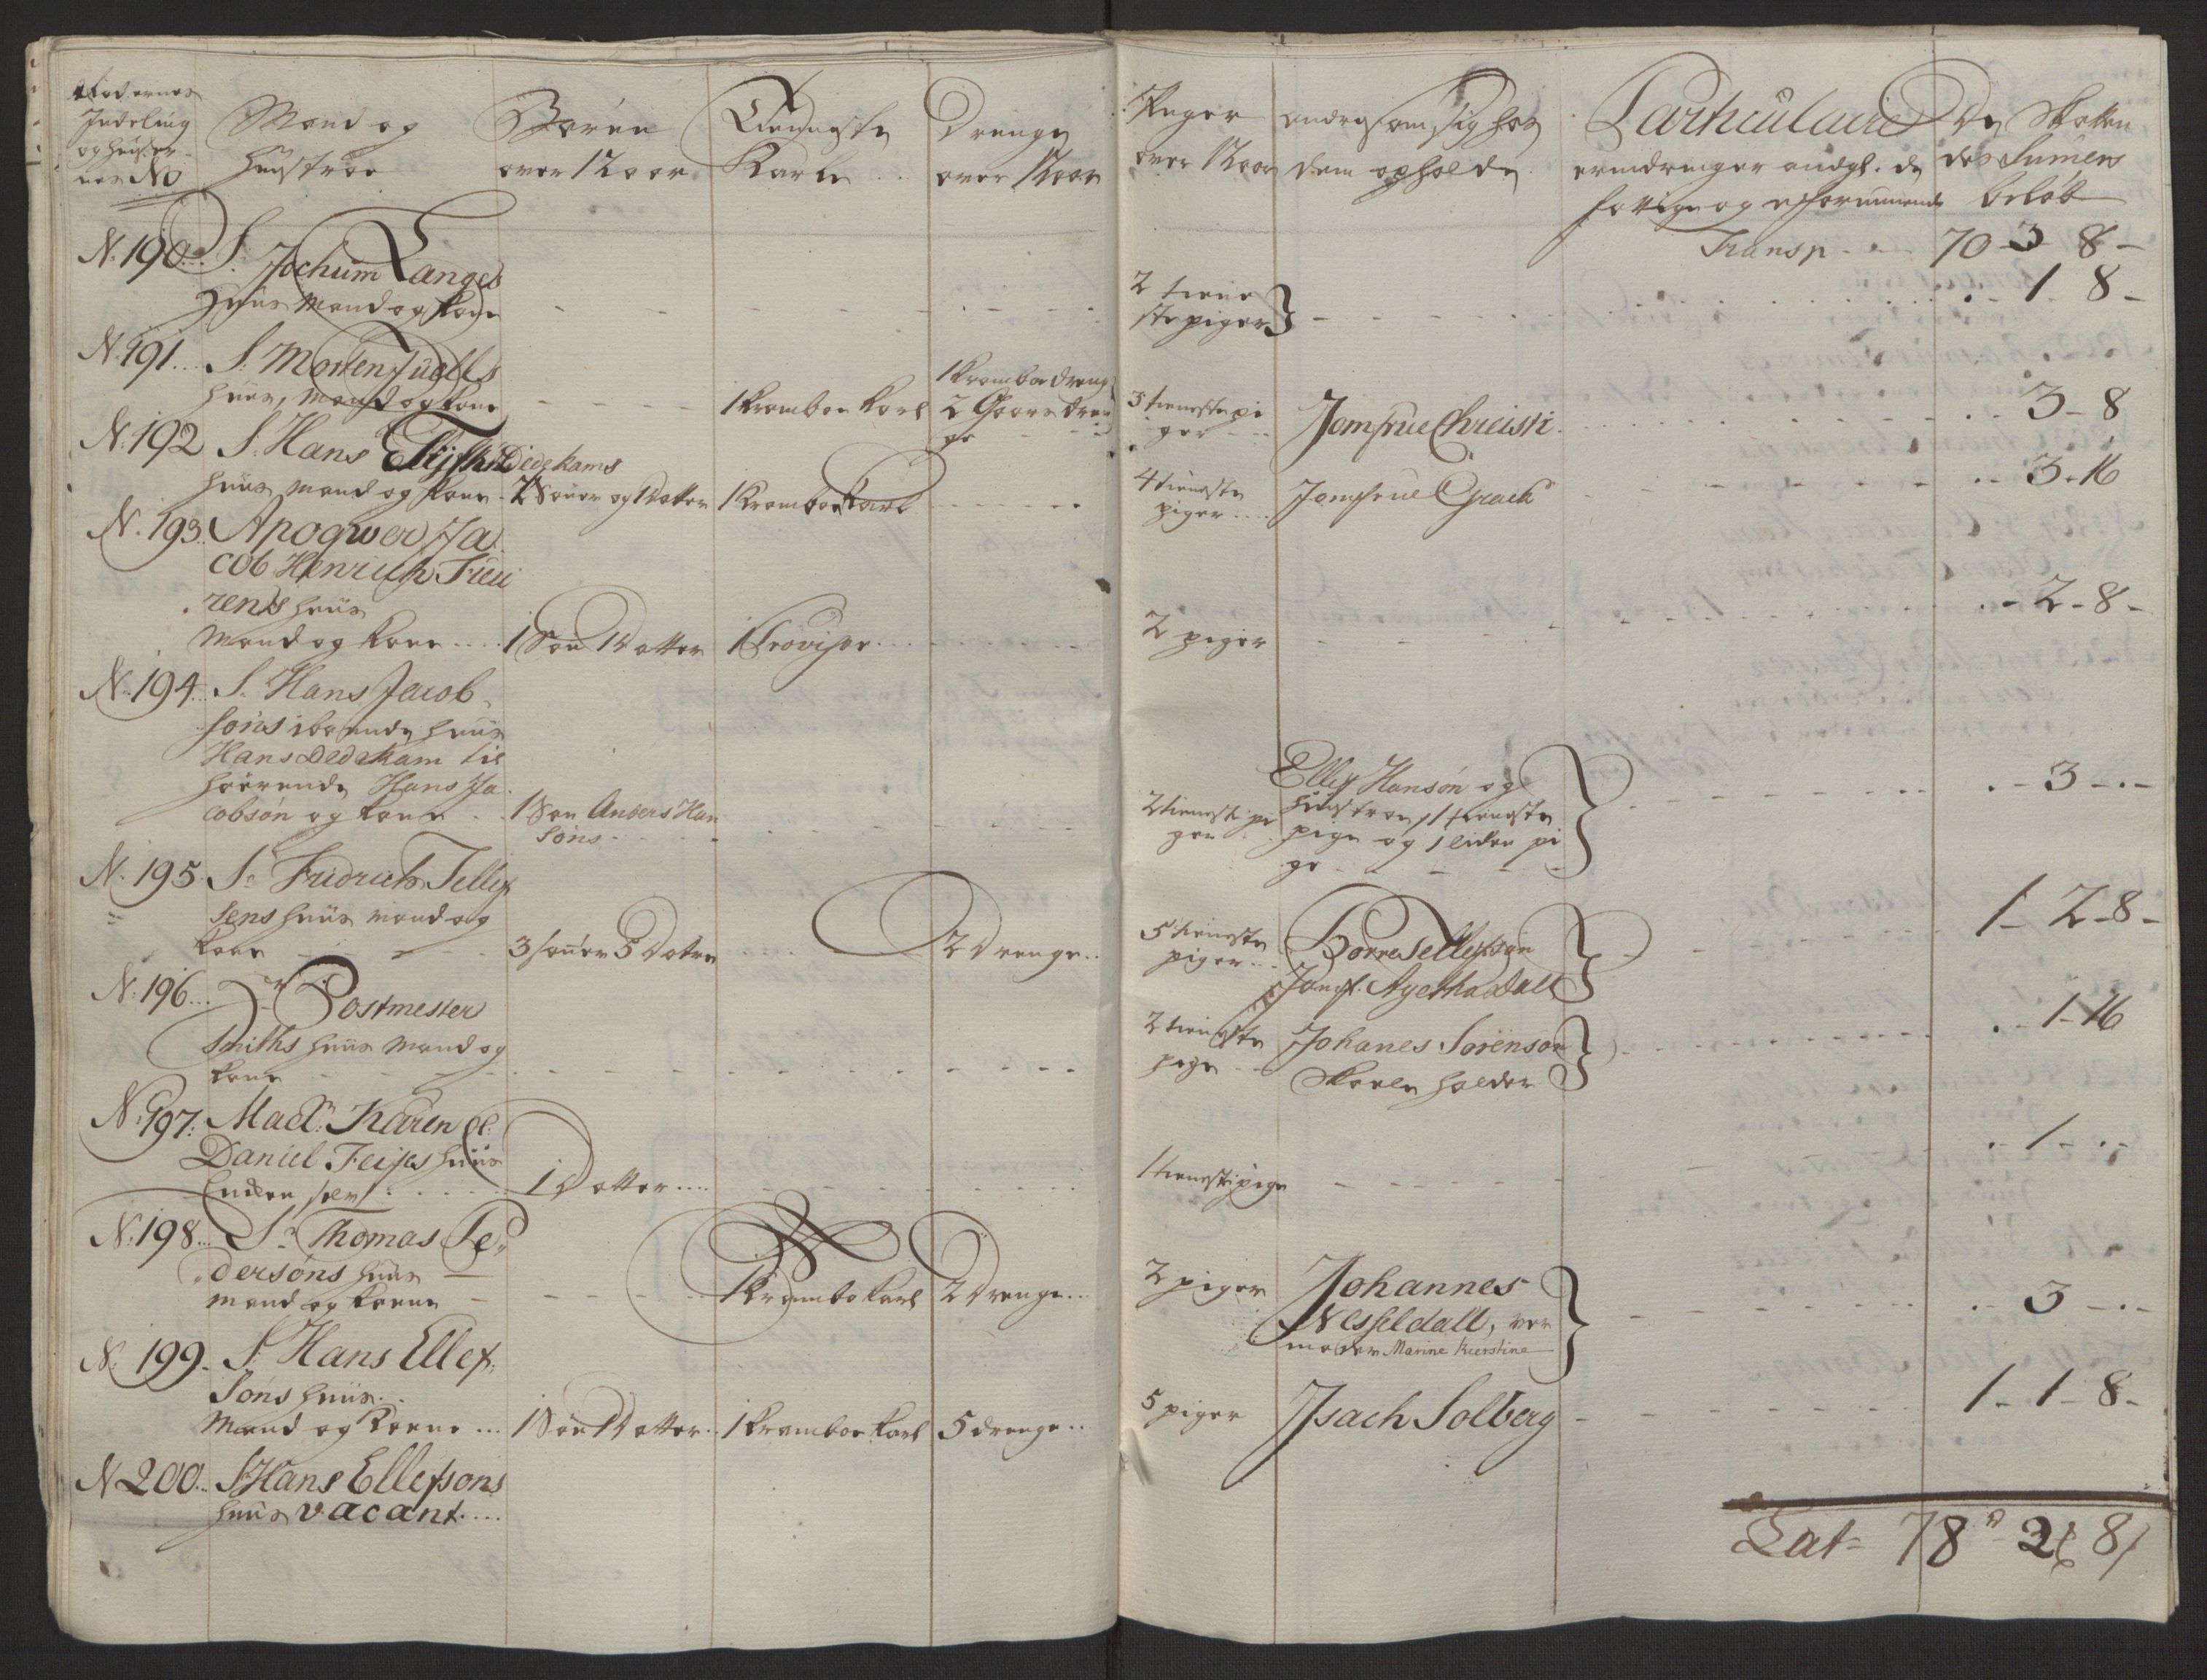 Rodernes
Indeling
og huser-
nes No
Mand og
Hustroe
Børen
over 12 aar
Tienneste
Karle
Drenge
over 12 aar
Piger
over 12 aar
andre som sig hos
dem opholde
Particulaire
erindringer andgl. de
fattige og uformuende
De Skatten
des Sumers
beløb
Transp. 70-3-8-
N. 190 S. Jochum Langes
Huus Mand og Kone
2 tiene
ste piger
1-8-
N. 191 S. Morten Juells
huus, Mand og Kone
1 Kramboe Karl
1 Kramboe dreng
2 Gaars dren
ge
3 tieneste pi
ger
Jomfrue Chreisti
3-8
N. 192 S. Hans Dedekams
huus Mand og Kone
2 Sønner og 1 Datter
1 Kramboe Karl
4 tieneste
piger
Jomfrue
3-16
N. 193 Apoqwer Ja
cob Henrich
rens huus
Mand og Kone
1 Søn 1 Datter
1 Provisor
2 piger
2-8-
N. 194 S. Hans Jacob
sons iboende huus
Hans Dedekam til
hørende Hans Ja
cobsøn og Kone
1 Søn Anders Han
søns
2 tieneste pi
ger
Ellef Hansøn og
hustroe, 1 tieneste
pige og 1 liden pi
ge
3-"-
N. 195 Sr. Fridrich Tellef
sens huus mand og
Kone
3 sønner 5 Døtre
2 Drenge
5 tieneste
piger
Børre Tellefsøn
Jomf. Agetha Dall
1-2-8-
N. 196 Hr Postmester
Smiths huus Mand og
Kone
2 tieneste
pige
Johanes Sørensøn
Skoele holder
1-16
N. 197 Mad. Karen Sl.
Daniel Feijes huus
Encken selv
1 Datter
1 tieneste pige
1-"-
N. 198 Sr. Thomas Pe
dersøns huus
mand og Konne
1 Krambo Karl
2 Drenge
2 piger
Johannes
Nesseldall, ver
moder Marine Kierstine
3-"-
N. 199 S. Hans Ellef
søns huus
Mand og Konne
1 Søn 1 Datter
1 Kramboe Karl
5 drenge
5 piger
Isach Solberg
1-1-8-
N 200 S. Hans Ellefsøns
huus vacant
Lat- 78-2-8